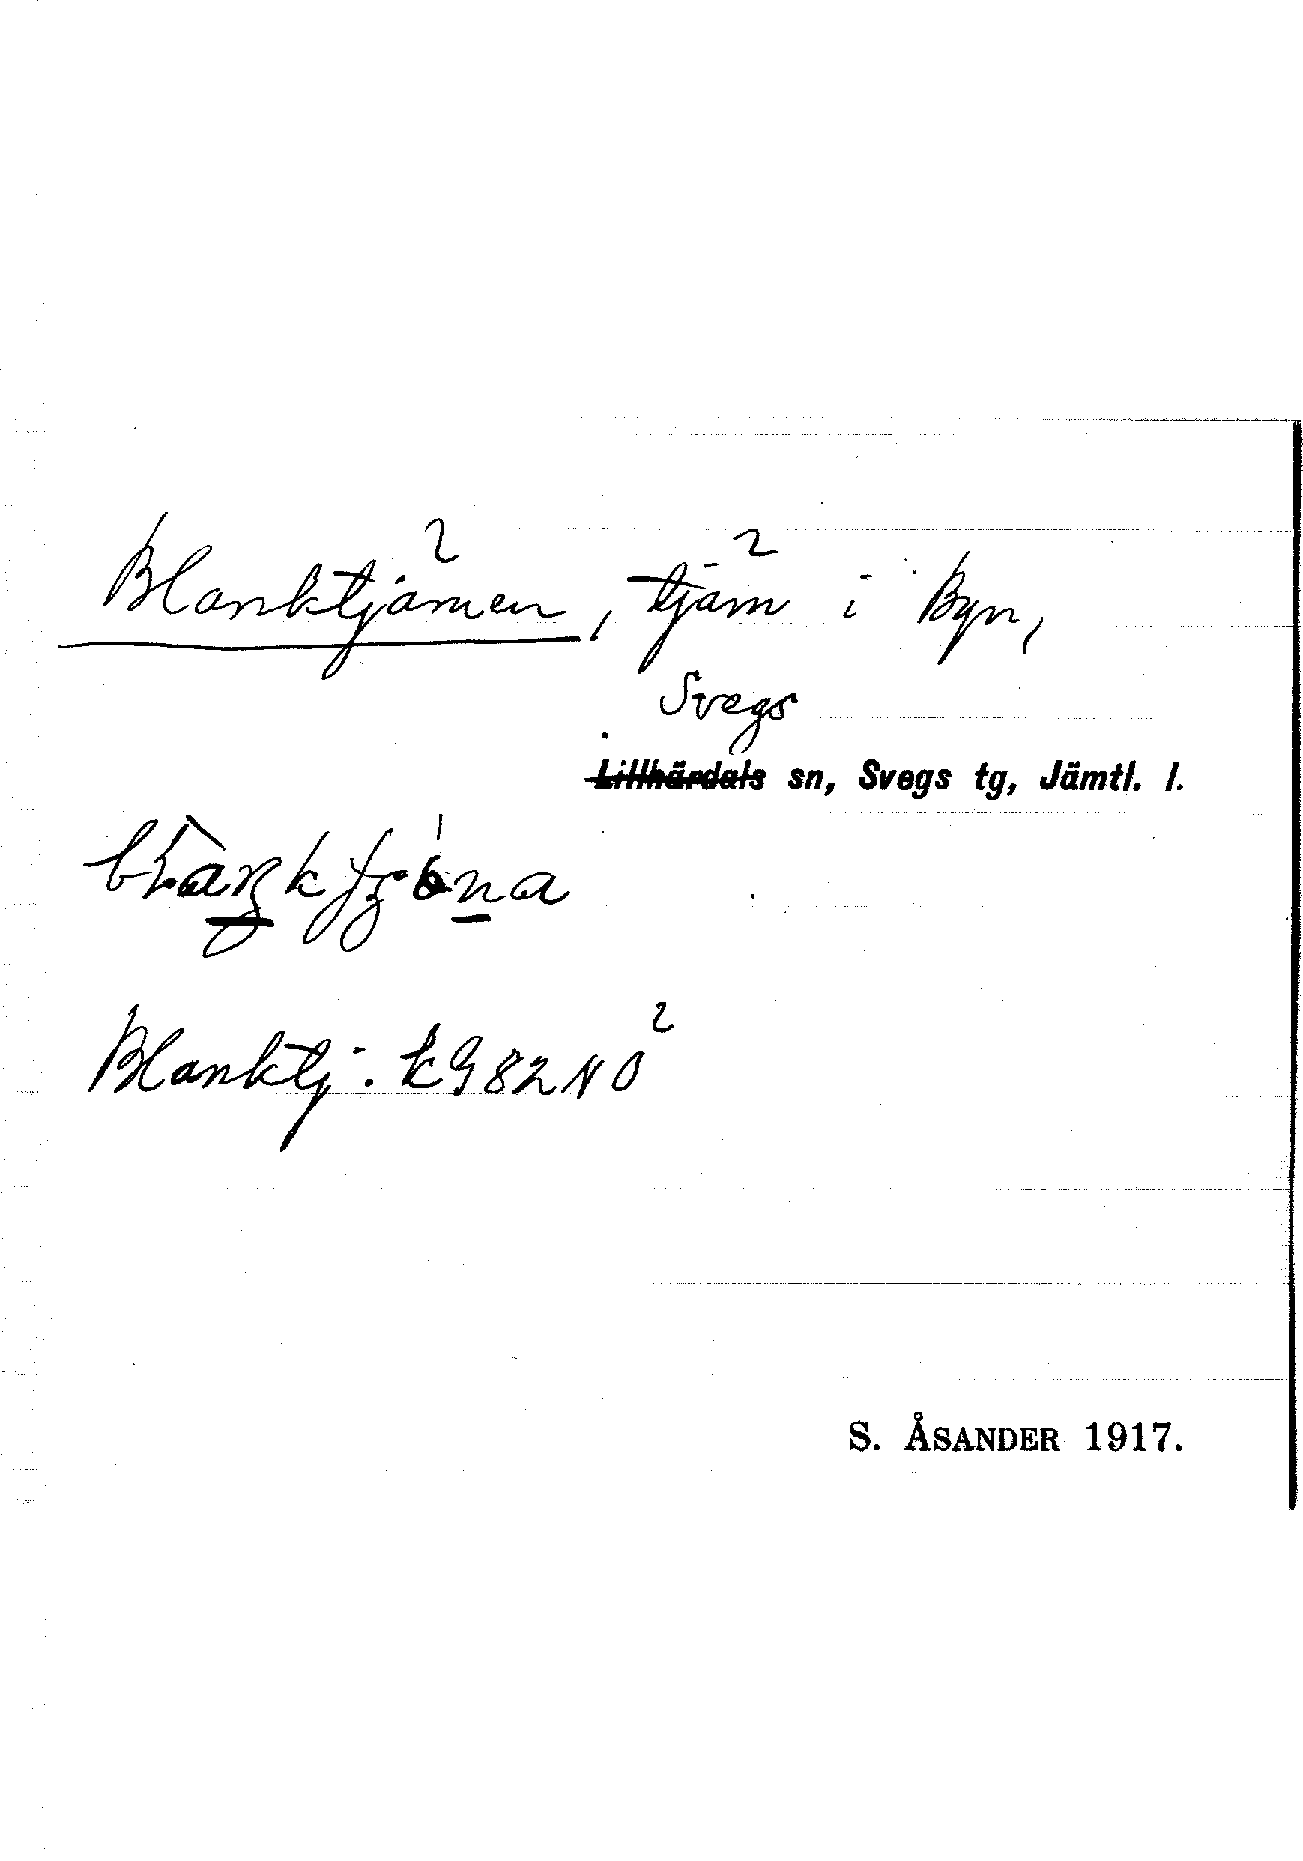 Blanktjärnen, tjärn i Byn,
Svegs
Lillhärdals sn, Svegs tg, Jämtl. l.
Blanktj. k982NO
S. ÅSANDER 1917.